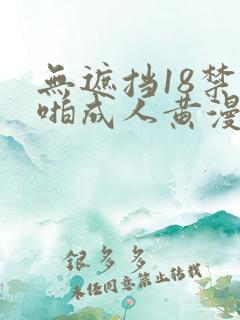 無遮挡18禁
啪成人黄漫
银多多
未经同意禁止转载